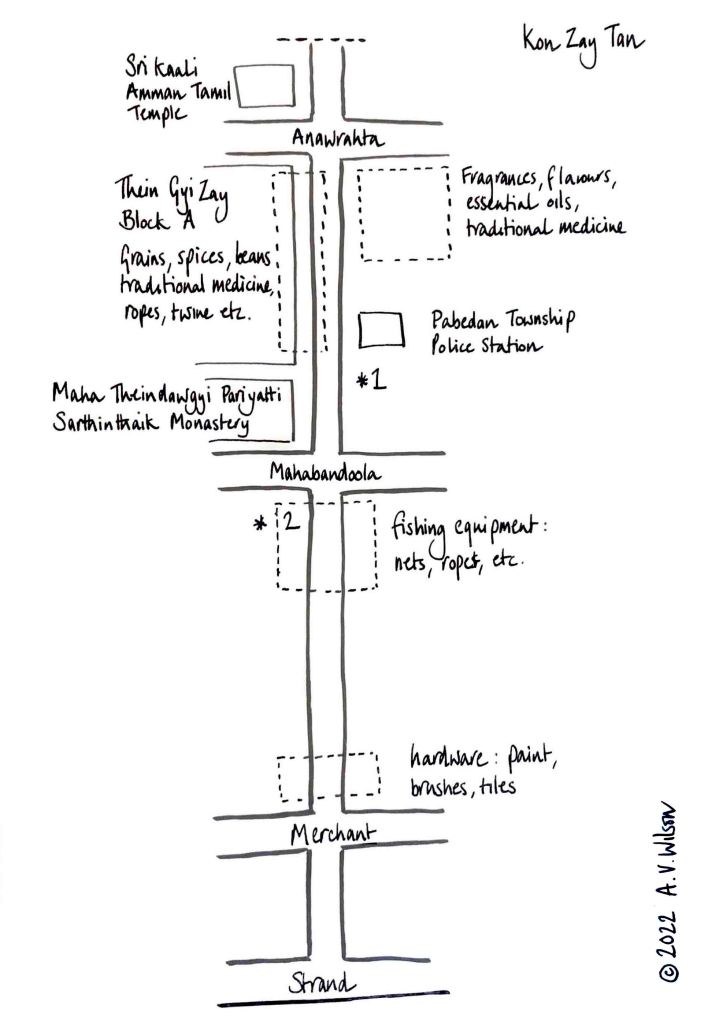 Kon Zay Tan
Sri Kaali
Amman Tamil
Temple
Anawrahta
Thein Gyi Zay
Block A
Grains, spices, beans
traditional medicine,
ropes, twine etc.
Fragrances, flavours,
essential oils,
traditional medicine
Pabedan Township
Police Station
*1
Maha Theindawgyi Pariyatti
Sarthinthaik Monastery
Mahabandoola
* 2
fishing equipment:
nets, ropes, etc.
hardware: paint,
brushes, tiles
Merchant
Strand
© 2022 A.V. Wilson